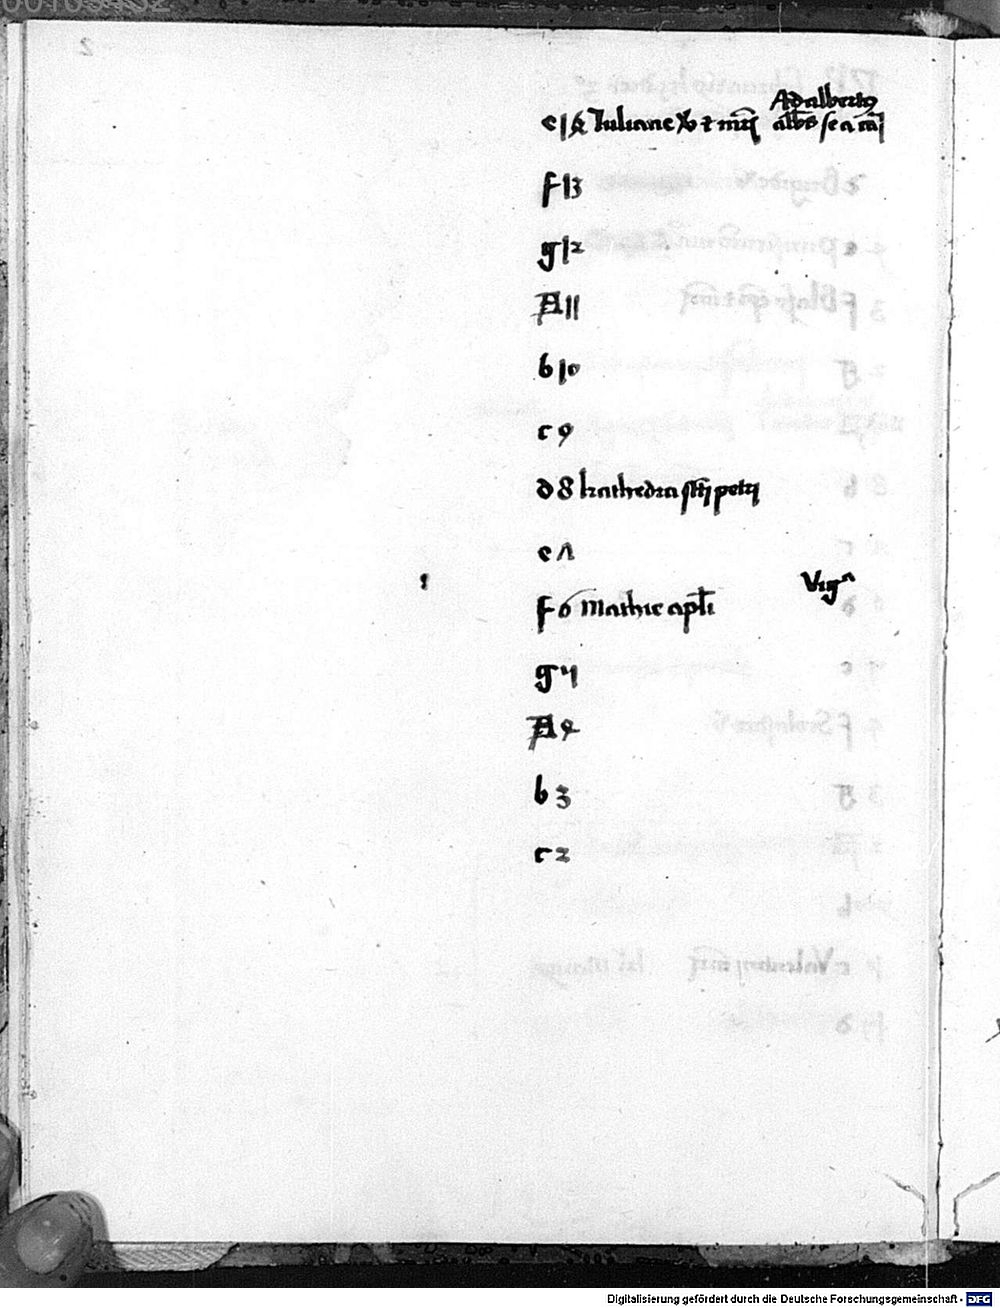 Adalbertꝰ
e 14 Iuliane v̄ ⁊ mr̄is
f 13
g 12
A 11
b 10
c 9
d 8 kathedra sc̄i petri
e 7
Vigᵃ
f 6 Mathie apl̄i
g 5
A 4
b 3
c 2
Digitalisierung gefördert durch die Deutsche Forschungsgemeinschaft - DFG